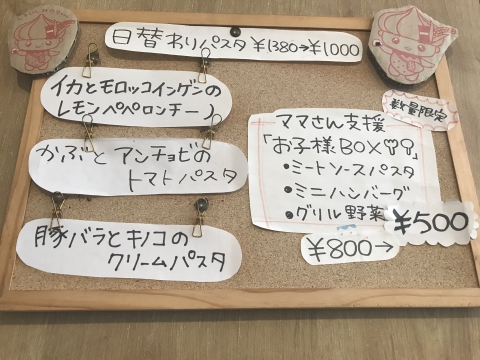 日替わりパスタ ¥1380→¥1000
イカとモロッコインゲンの
レモンペペロンチーノ
かぶとアンチョビの
トマトパスタ
豚バラとキノコの
クリームパスタ
数量限定
ママさん支援
「お子様BOX♡♡」
•ミートソースパスタ
•ミニハンバーグ
•グリル野菜
¥800→
¥500